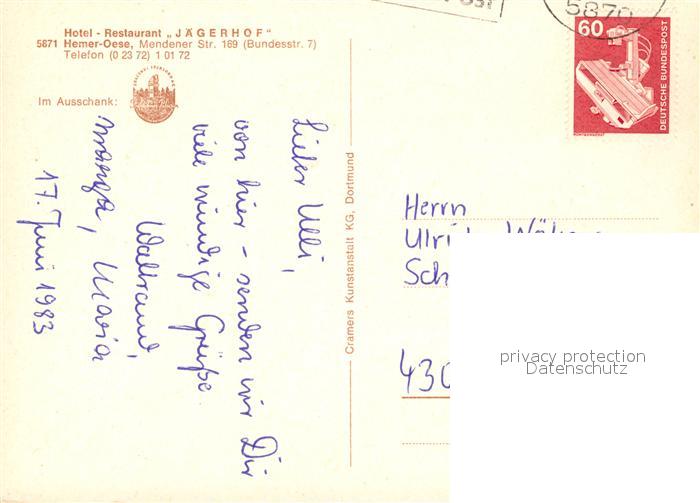 Hotel - Restaurant „JÄGERHOF"
5871 Hemer-Oese, Mendener Str. 169 (Bundesstr. 7)
Telefon (0 23 72) 1 01 72
Im Ausschank:
Lieber Ulli,
von hier - senden wir Dir
viele sündige Grüße.
Waltraud,
Maria
17. Juni 1983
Cramers Kunstanstalt KG, Dortmund
5870
60
DEUTSCHE BUNDESPOST
Herrn
430
privacy protection
Datenschutz